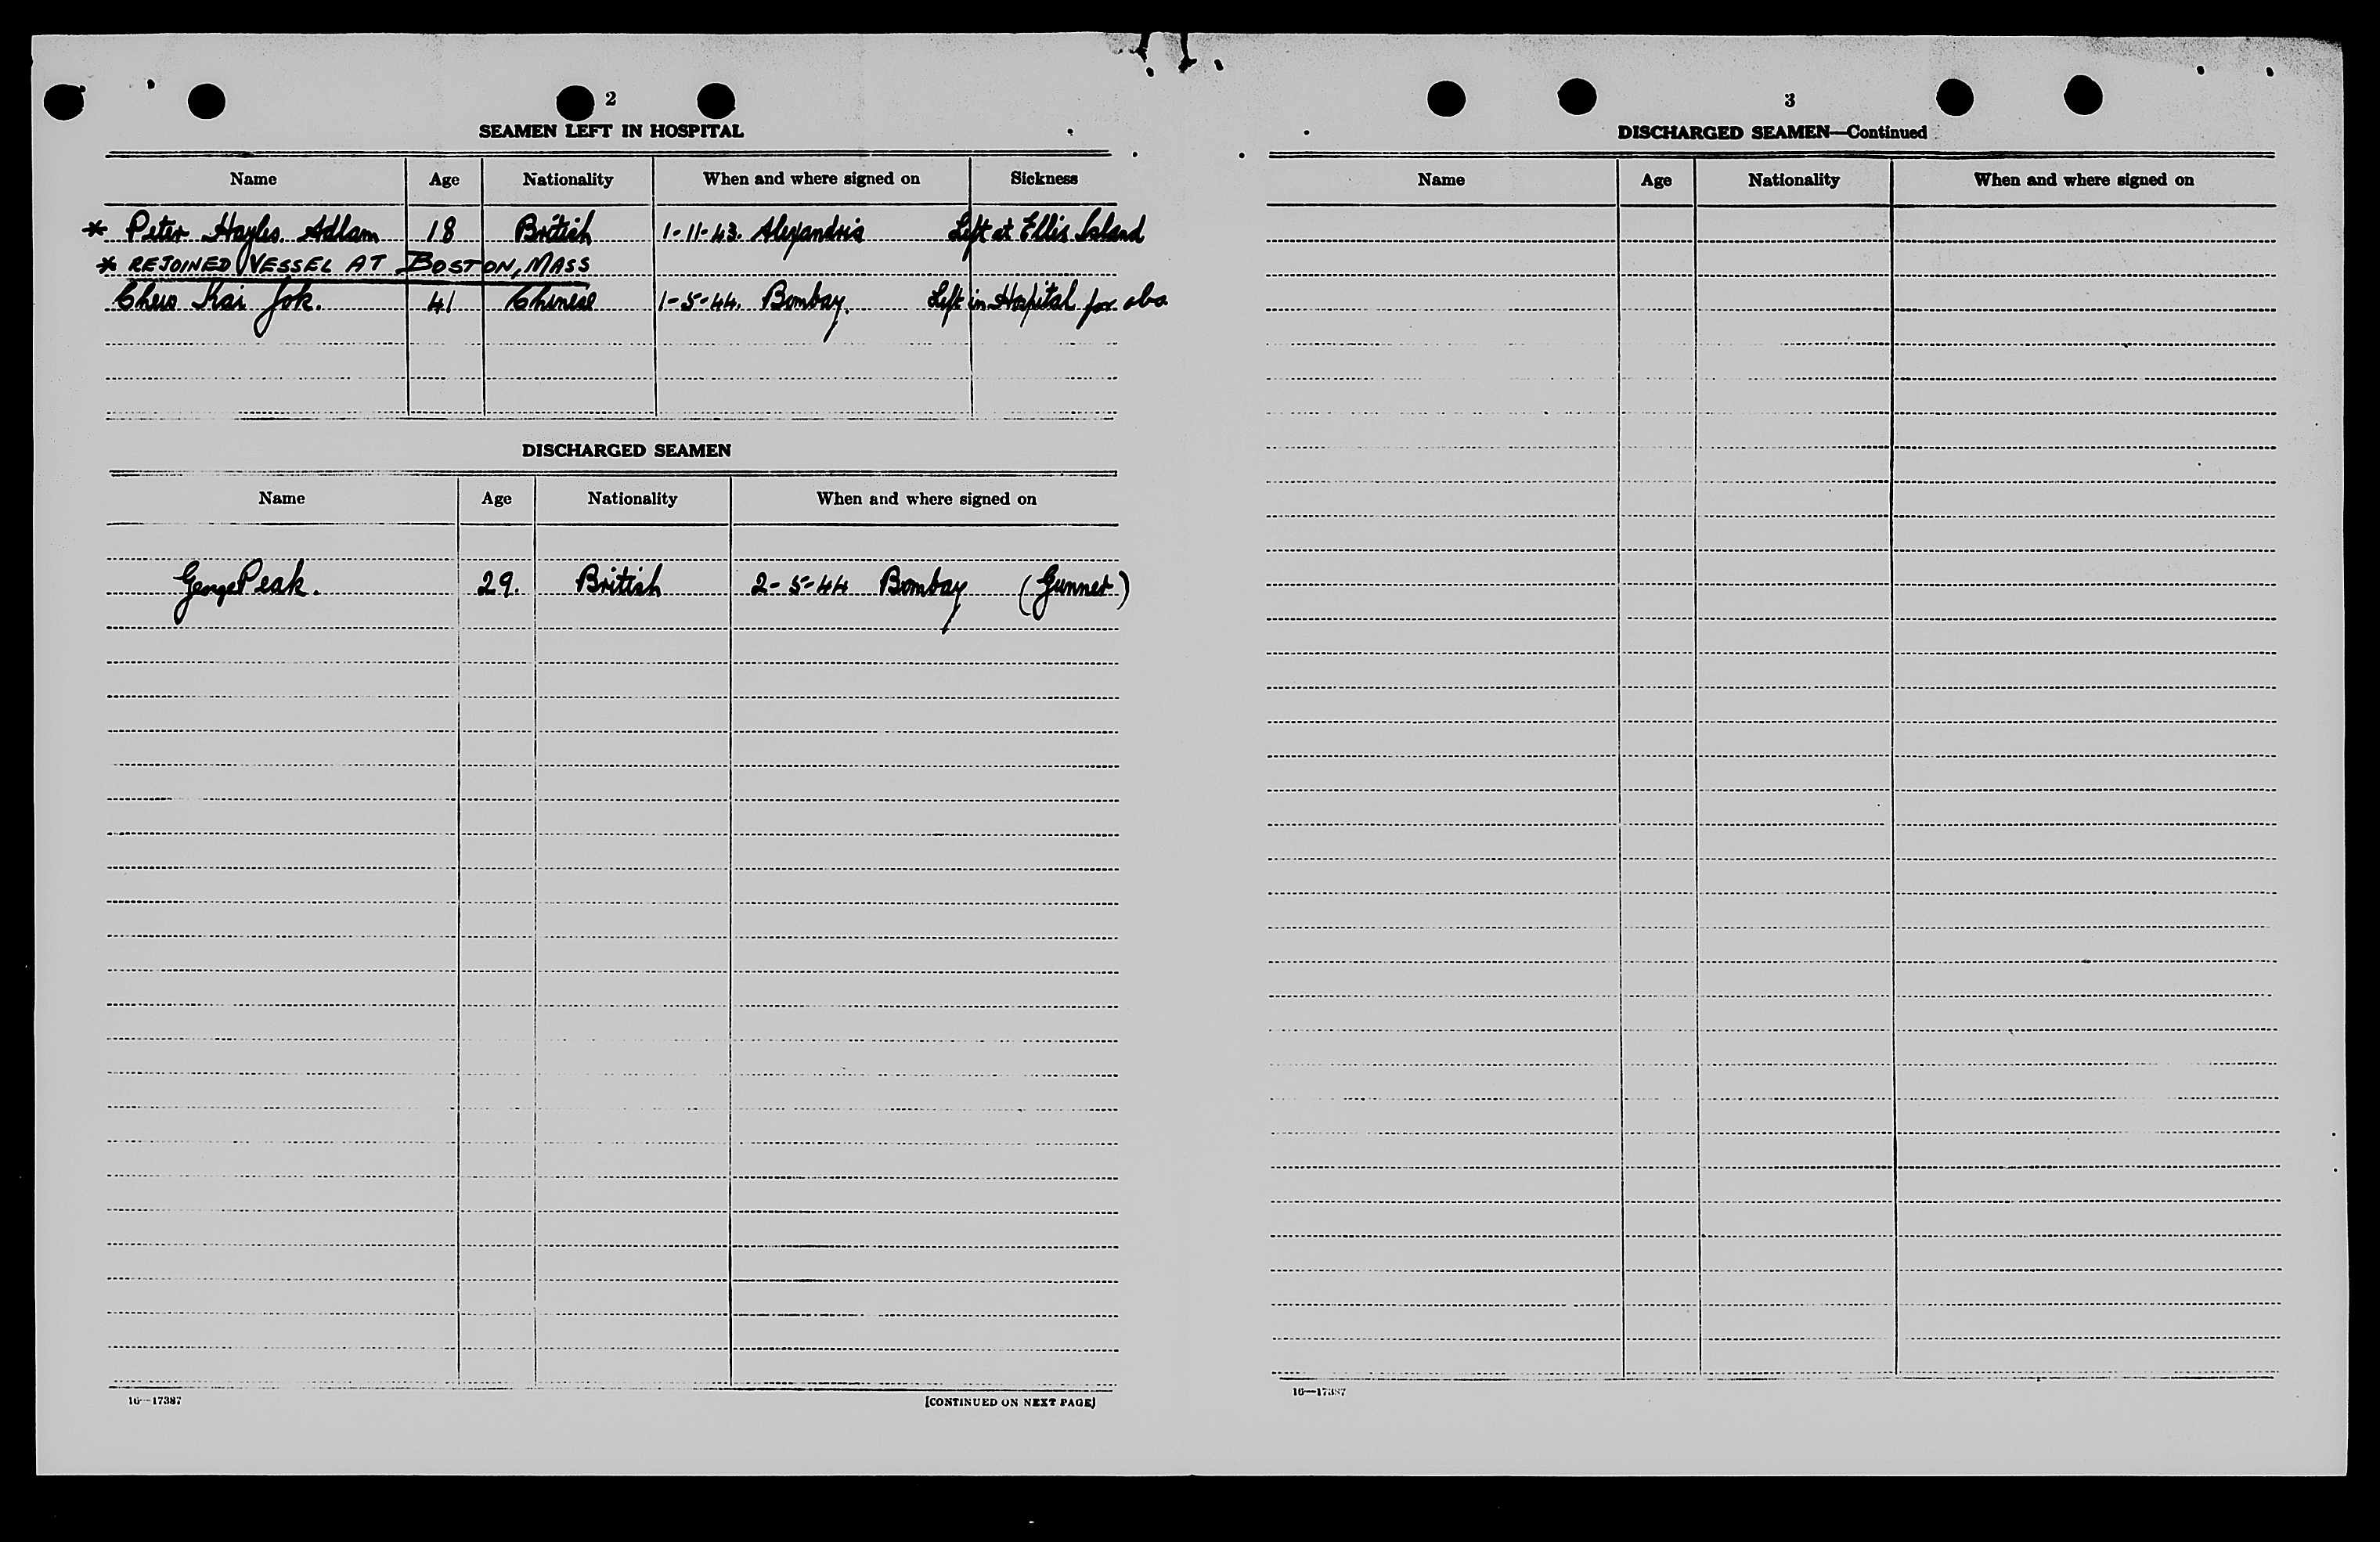 2
SEAMEN LEFT IN HOSPITAL
Name Age Nationality When and where signed on Sickness
* Peter Hayles Adlam 18 British 1-11-43. Alexandria Left at Ellis Island
* REJOINED VESSEL AT BOSTON, MASS
Chew Kai Jok. 41 Chinese 1-5-44. Bombay. Left in Hospital for obs
DISCHARGED SEAMEN
Name Age Nationality When and where signed on
George Peak. 29. British 2-5-44 Bombay (Gunner)
16—17387
[CONTINUED ON NEXT PAGE]
3
DISCHARGED SEAMEN—Continued
Name Age Nationality When and where signed on
16—17387